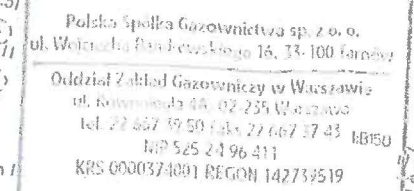 Polska Spółka Gazownictwa sp. z o. o.
ul. Wojciecha Bandrowskiego 16, 33-100 Tarnów
Oddział Zakład Gazowniczy w Warszawie
ul. 4A, 02-235 Warszawa
tel. 22 667 39 50 faks 22 667 37 43 KB150
NIP 525 24 96 411
KRS 0000374001 REGON 142739519